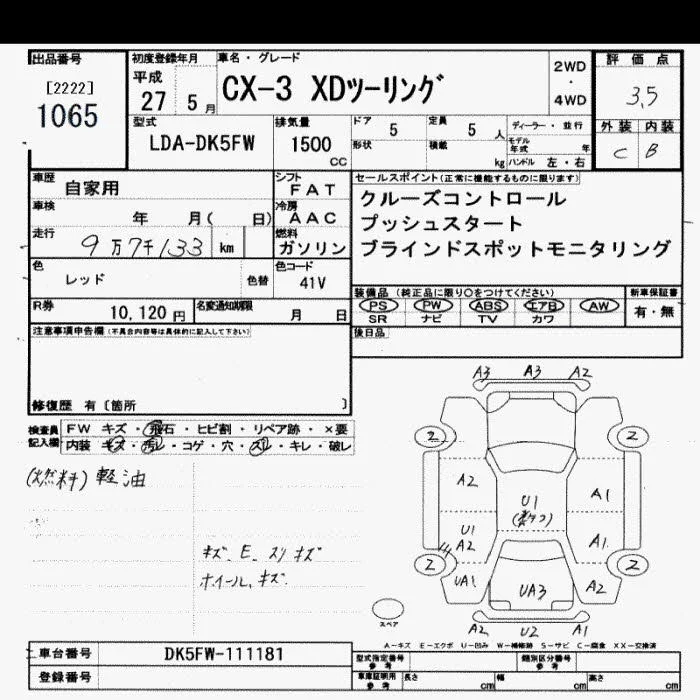 出品番号
[2222]
1065
初度登録年月
平成
27 5 月
車名・グレード
CX-3 XDツーリング
2WD
・
4WD
評価点
3,5
型式
LDA-DK5FW
排気量
1500
CC
ドア
5
定員
5 人
形状
積載
kg
ディーラー・並行
モデル年式 年
ハンドル 左・右
外装 内装
C B
車歴
自家用
シフト
FAT
車検
年 月( 日)
冷房
AAC
走行
9万7千133 km
燃料
ガソリン
セールスポイント(正常に機能するものに限ります)
クルーズコントロール
プッシュスタート
ブラインドスポットモニタリング
色
レッド
色替
色コード
41V
装備品(純正品に限り○をつけてください)
PS PW ABS エアB AW
SR ナビ TV カワ
新車保証書
有・無
R券
10,120 円
名変通知期限
月 日
後日品
注意事項申告欄(不具合内容等は具体的に記入して下さい)
修復歴 有〔箇所 〕
検査員記入欄
FW キズ・飛石・ヒビ割・リペア跡・×要
内装 キズ・汚レ・コゲ・穴・スレ・キレ・破レ
(燃料)軽油
キズ、E、スリキズ
ホイール、キズ
A3 A3 A2
2 2
A2 A1
U1
U1
A2 A1
2 2
UA1 UA3 A2
A2 U2 A1
スペア
A-キズ E-エクボ U-凹み W-補修跡 S-サビ C-腐食 XX-交換済
車台番号
DK5FW-111181
登録番号
型式指定番号
参考
類別区分番号
参考
車庫証明用
参考
長さ cm 幅 cm 高さ cm